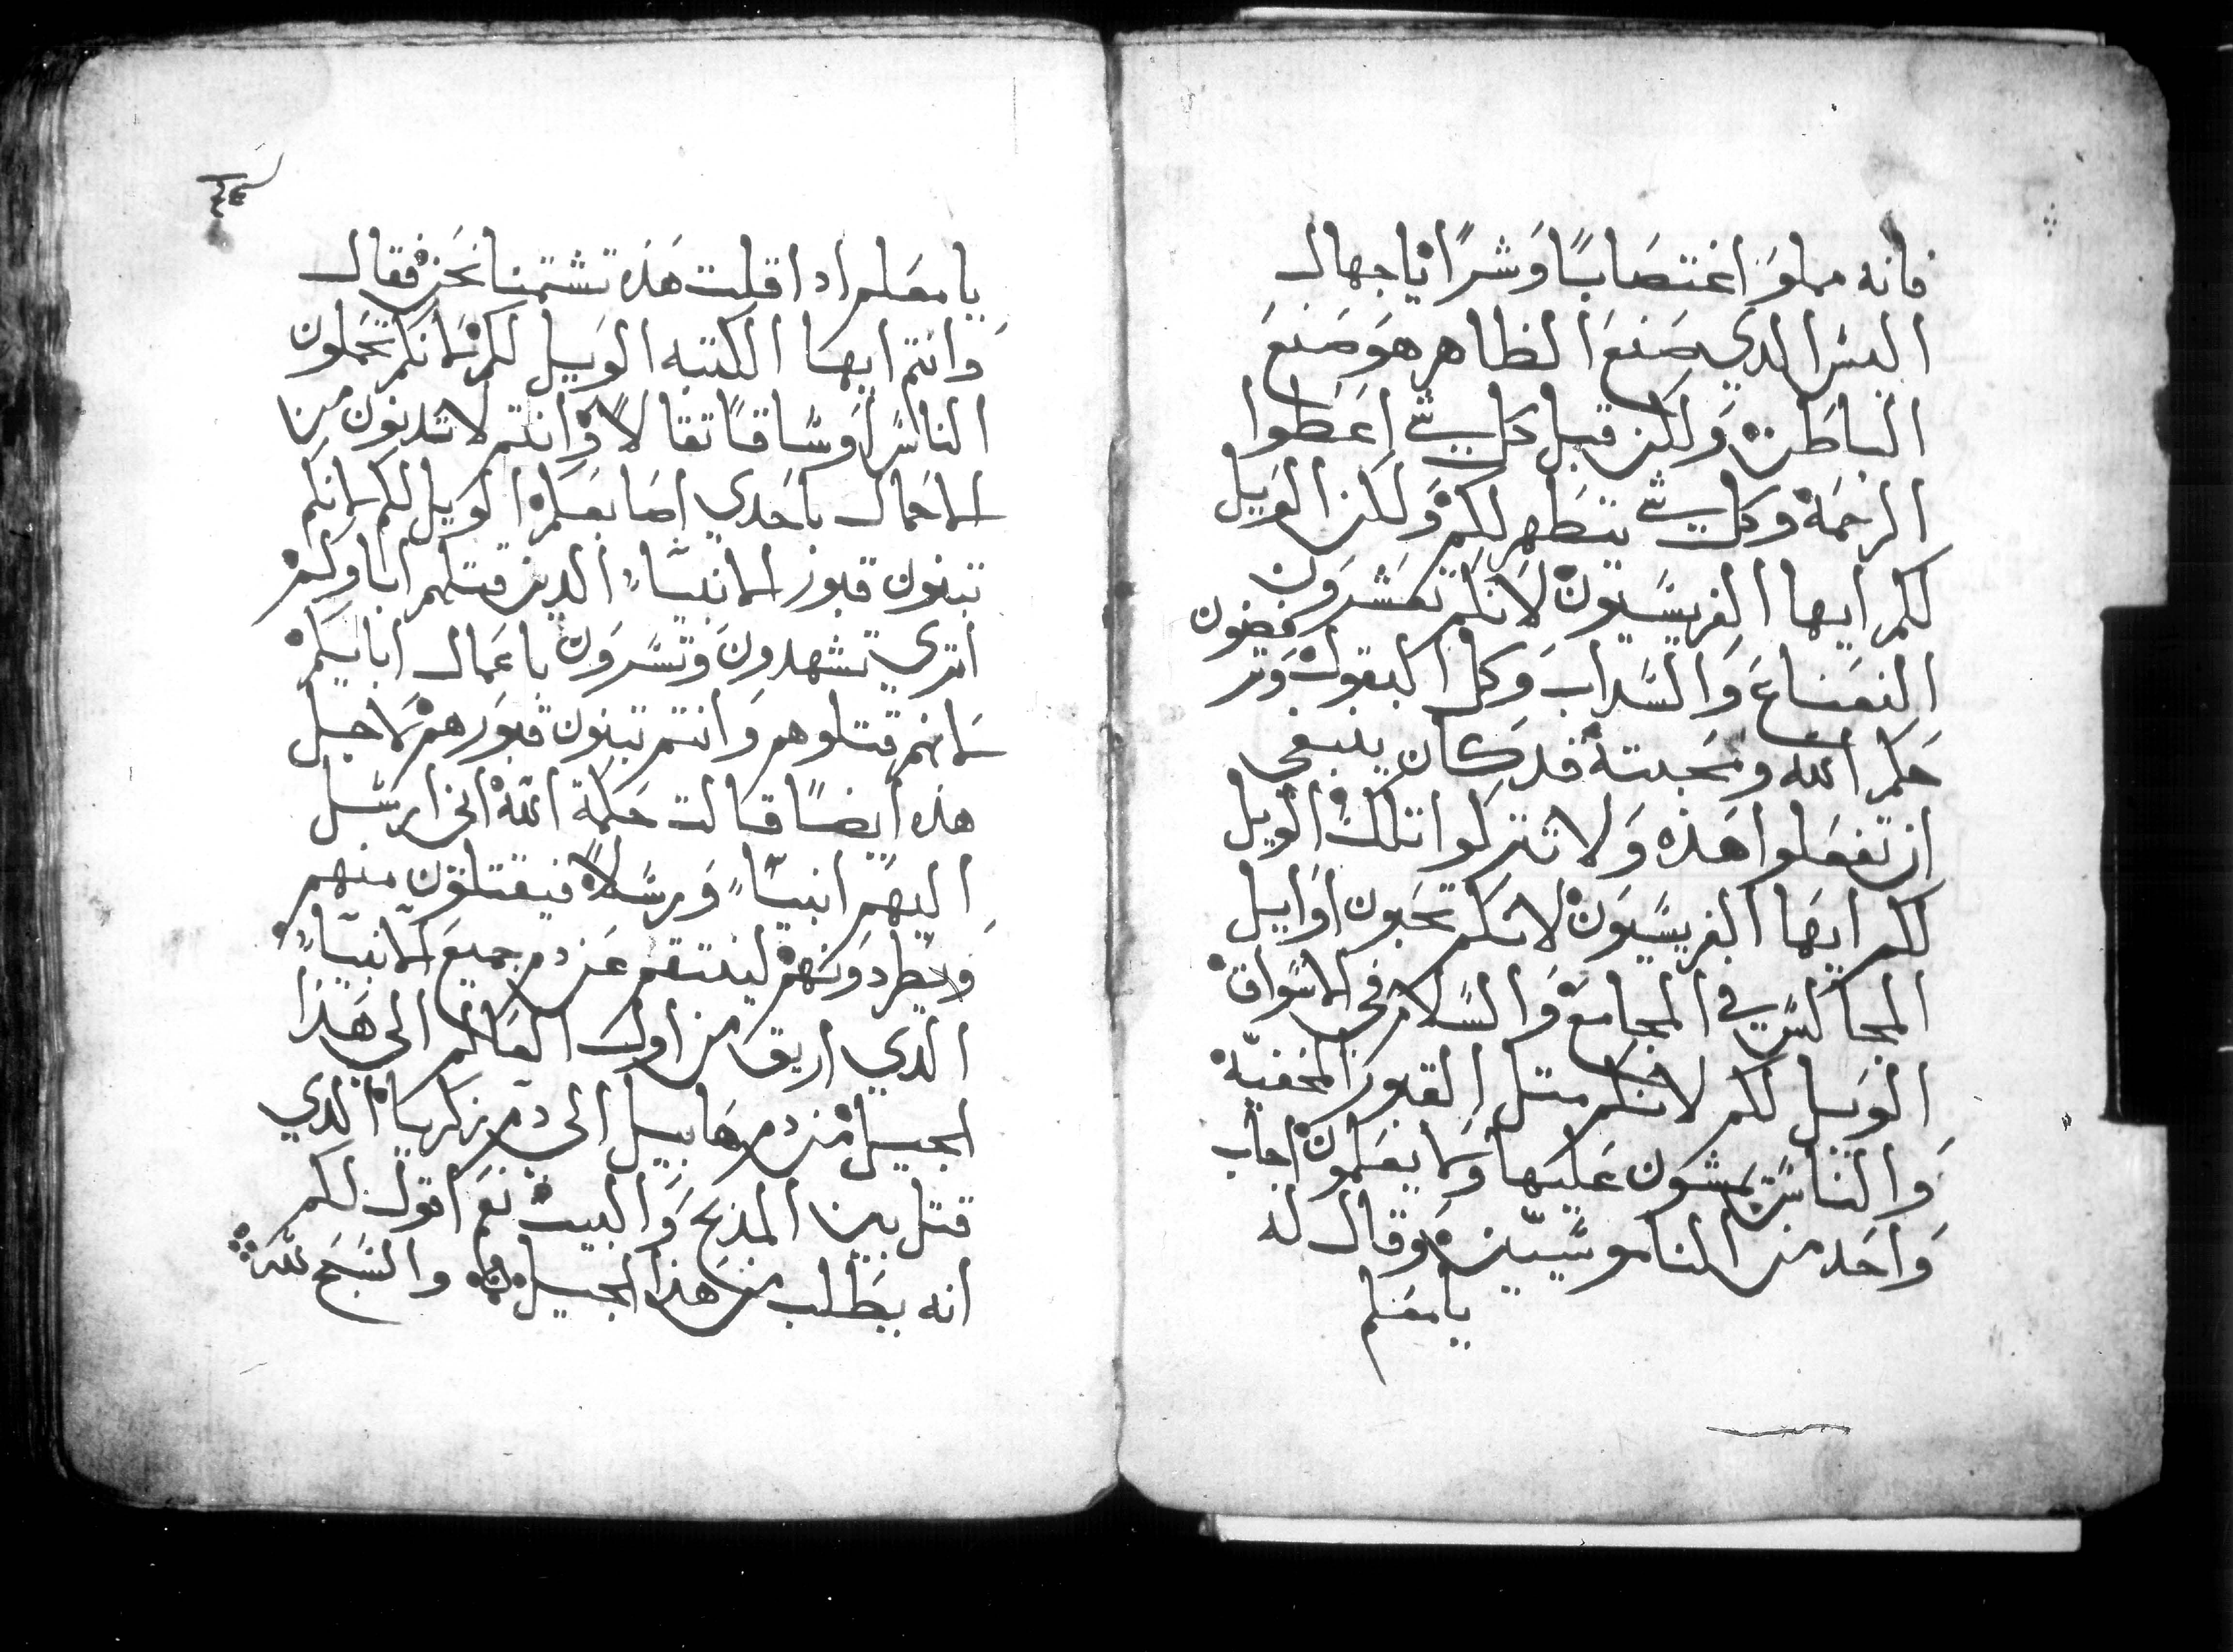 فانه مملوَ اغتصَابًا وَشرًا يا جهال
اليس الدي صَنعَ الظاهر هوَ صَنعَ
الباطن وَلكن قبل كل شي اعَطوا
الرحمَة وكل شي يتطهر لكم وَلكن الوَيل
لكم ايها الفريسيون لانكم تعَشرَون
النعَناعَ وَالسَداب وَكل البقول وَتر
فضون
حكم الله ومحَبته قد كان ينبغي
ان تفعَلوا هَذه وَلا تتركوا تلك الوَيل
لكم ايهَا الفريسيَون لانكم تحَبون اوَايل
المجالس في المجامعَ وَالسَلام في الاسَواق
الوَيل لكم لانكم متل القبور المخفيّة
وَالناسَ يمشون عَليها وَلا يعَلمون اجاب
وَاحَد من الناموسَيّين وَقال له
يا معَلم
يا معَلم ادا قلت هَذه تشتمنا نحَن فقال
وَانتم ايهَا الكتبه الوَيل لكم لانكم تحَملون
الناسَ اوَسَاقًا تقالًا وَانتم لا تدنون من
الاحمَال باحَدي اصَابعَكم الوَيل لكم لانكم
تبنون قبور الانبيَاء الدين قتلهم اباوَكم
اتري تشهدونَ وَتسَرَون باعَمال ابايكم
لانهم قتلوهم وَانتم تبنون قبوَرهم لاجل
هذه ايضًا قالت حَكمة الله اني ارسَل
اليهَم انبيَاء وَرسَلًا فيقتلوَن منهم
وَيطردوَنهم لينتقم عَن دم جميعَ الانبيَاء
الدي اريق من اوَل العَالم الي هَذا
الجيل من دم هَابيل الي دم زكريا الدي
قتل بين المدبح وَالبيت نعَم اقول لكم
انه يطَلب من هَذا الجيل والسَبَح لله